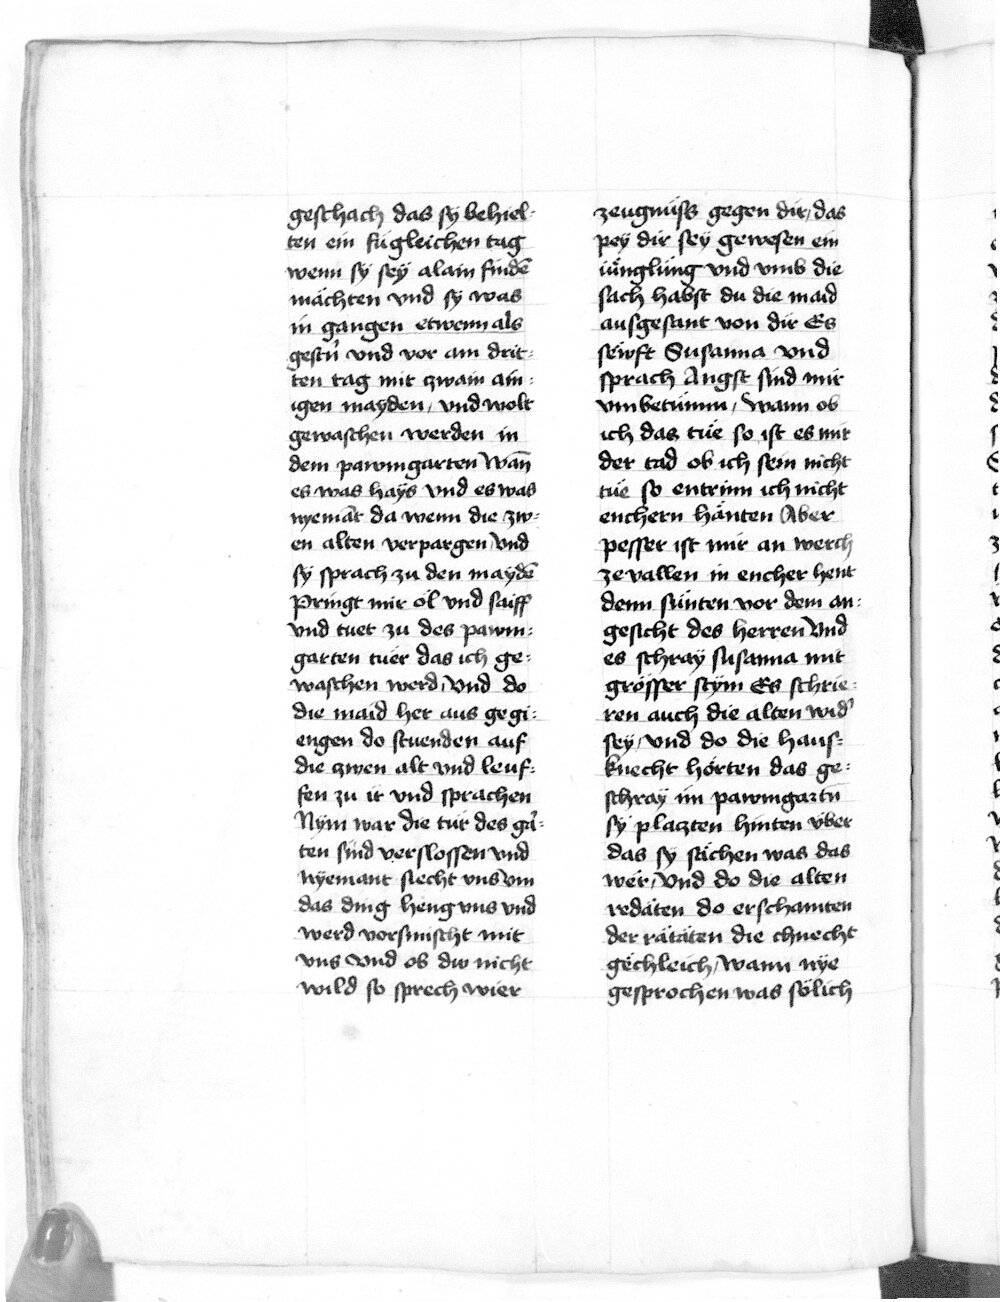 geschach das sÿ behiel-
ten ein fúgleichen tag
wenn sÿ seÿ alain findē
mächten vnd sÿ was
in gangen etwenn als
gestn̄ vnd vor am drit-
ten tag mit zwain ain-
igen mayden / vnd wolt
gewaschen werden in
dem pawmgarten Wan̄
es was haÿs vnd es was
nyemāt da wenn die zw-
en alten verpargen Vnd
sÿ sprach zu den maydē
Pringt mir öl vnd saiff
vnd tuet zu des pawm-
garten tuer das ich ge-
waschen werd / Vnd do
die maid her aus gegi-
engen do stuenden auf
die zwen alt vnd leuf-
fen zu ir vnd sprachen
Nym war die tür des gar-
ten sind verslossen vnd
Nÿemant siecht vns Vm
das ding heng vns vnd
werd vormischt mit
vns Vnd ob dw nicht
wild so sprech wier
zeugnüss gegen dir / das
peÿ dir seÿ gewesen ein
iüngling vnd vmb die
sach habst du die maid
ausgesant von dir Es
sewft Susanna vnd
sprach Angst sind mir
vmbetumm / Wann ob
ich das tüe so ist es mir
der tad ob ich sein nicht
tüe so entrinn ich nicht
enchern hänten Aber
pesser ist mir an werch
ze vallen in encher hent
denn sünten vor dem an-
gesicht des herren Vnd
es schraÿ susanna mit
grösser stÿm Es schrie-
ren auch die alten wid'
seÿ / Vnd do die haus-
knecht hörten das ge-
schraÿ im pawmgartn
sÿ plazten hinten vber
das sÿ sächen was das
wer / Vnd do die alten
redäten do erschamten
der rätäten die chnecht
gechleich / Wann nÿe
gesprochen was sölich